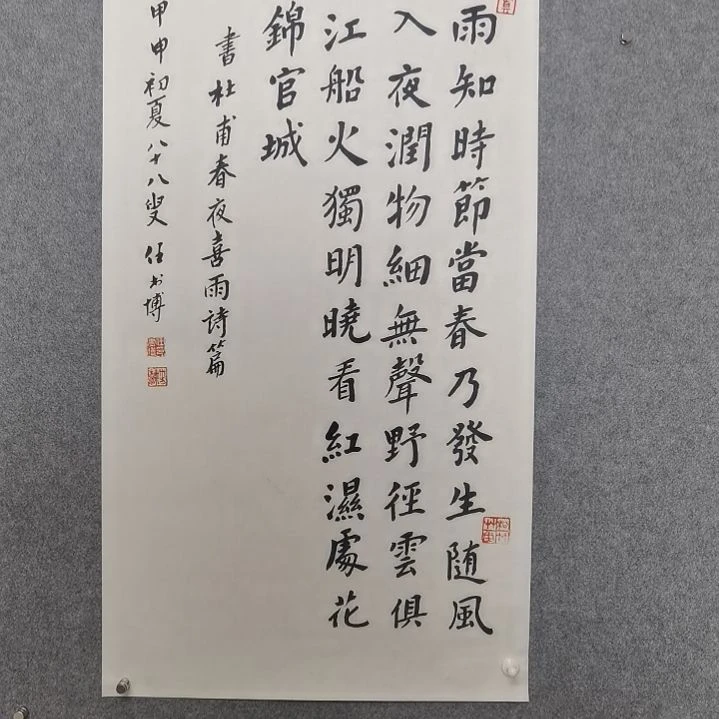 雨知時節當春乃發生随風
入夜潤物細無聲野徑雲俱
江船火獨明曉看紅濕處花
錦官城
書杜甫春夜喜雨詩篇
甲申初夏八十八叟任书博